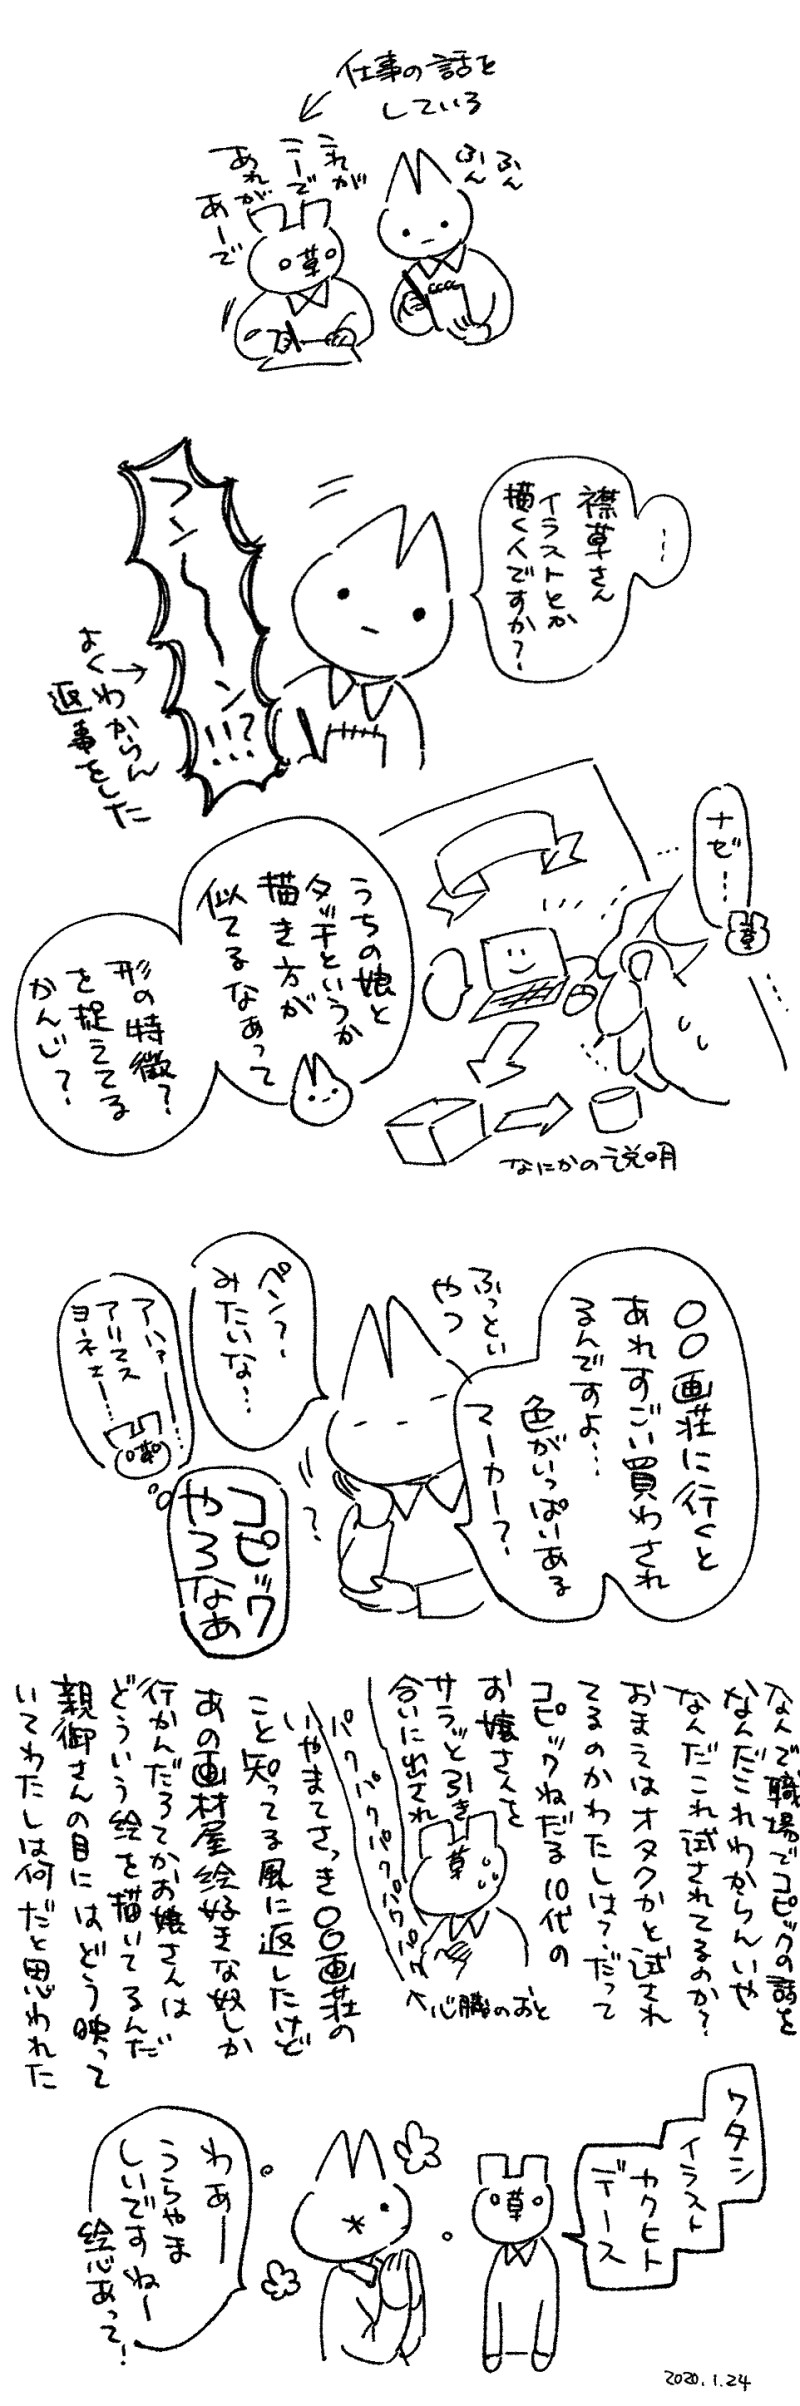 仕事の話を
している
ふん
ふん
これが
こーで
あれが
あーで
草
…
襟草さん
イラストとか
描く人ですか?
フン〜ン!!?
よくわからん
返事をした
ナゼ…
草
うちの娘と
タッチというか
描き方が
似てるなあって
形の特徴?
を捉えてる
かんじ?
なにかの説明
〇〇画荘に行くと
あれすごい買わされ
るんですよ…
色がいっぱいある
マーカー?
ふっとい
やつ
ペン?
みたいな…
?
アハァー…
アリマス
ヨネェー…
草
コピック
やろなあ
なんで職場でコピックの話を
なんだこれわからんいや
なんだこれ試されてるのか?
おまえはオタクかと試され
てるのかわたしは?だって
コピックねだる10代の
お嬢さんを
サラッと引き
合いに出され
草
パクパクパクパクパクパク
心臓のおと
いやまてさっき〇〇画荘の
こと知ってる風に返したけど
あの画材屋絵好きな奴しか
行かんだろてかお嬢さんは
どういう絵を描いてるんだ
親御さんの目にはどう映って
いてわたしは何だと思われた
ワタシ
イラスト
カクヒト
デース
草
わあー
うらやま
しいですねー
絵心あって!
2020.1.24